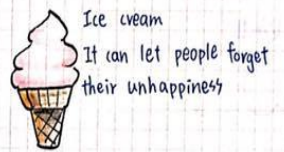 Ice cream
It can let people forget
their unhappiness